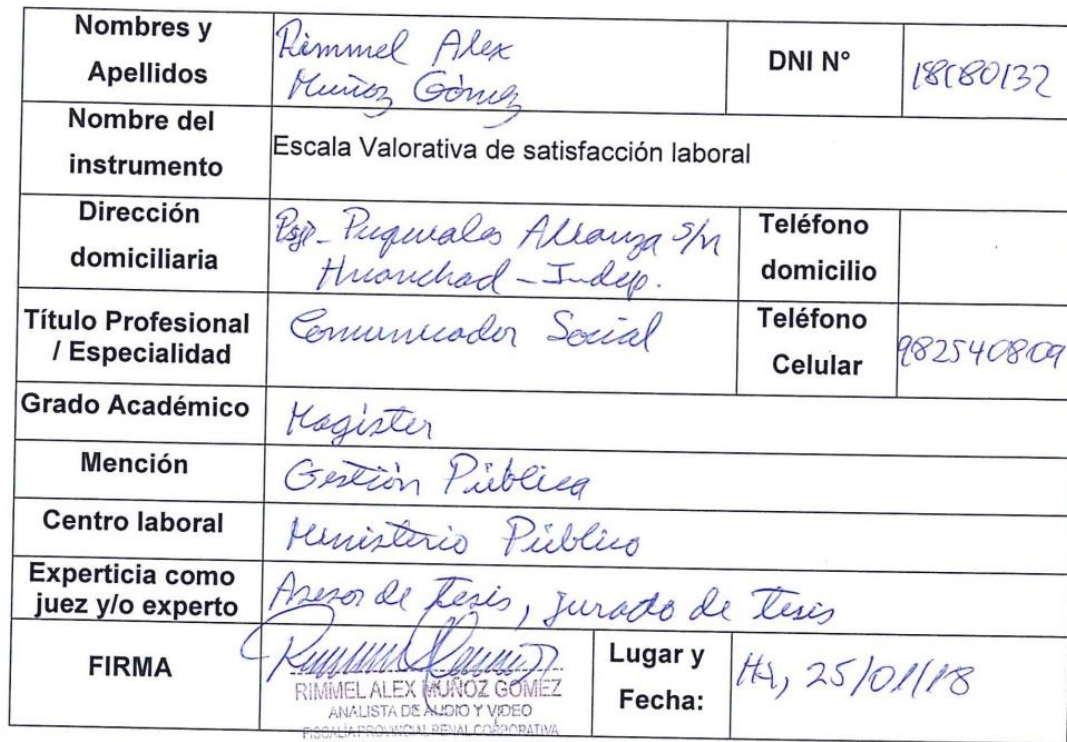 Nombres y
Apellidos
Rimmel Alex
Muñoz Gómez
DNI N°
18180132
Nombre del
instrumento
Escala Valorativa de satisfacción laboral
Dirección
domiciliaria
Psje- Puquiales Alianza s/n
Huanchac - Indep.
Teléfono
domicilio
Título Profesional
/ Especialidad
Comunicador Social
Teléfono
Celular
982540809
Grado Académico
Magister
Mención
Gestión Pública
Centro laboral
Ministerio Público
Experticia como
juez y/o experto
Asesor de Tesis, jurado de Tesis
FIRMA
RIMMEL ALEX MUÑOZ GOMEZ
ANALISTA DE AUDIO Y VIDEO
FISCALÍA PROVINCIAL PENAL CORPORATIVA
Lugar y
Fecha:
25/01/18